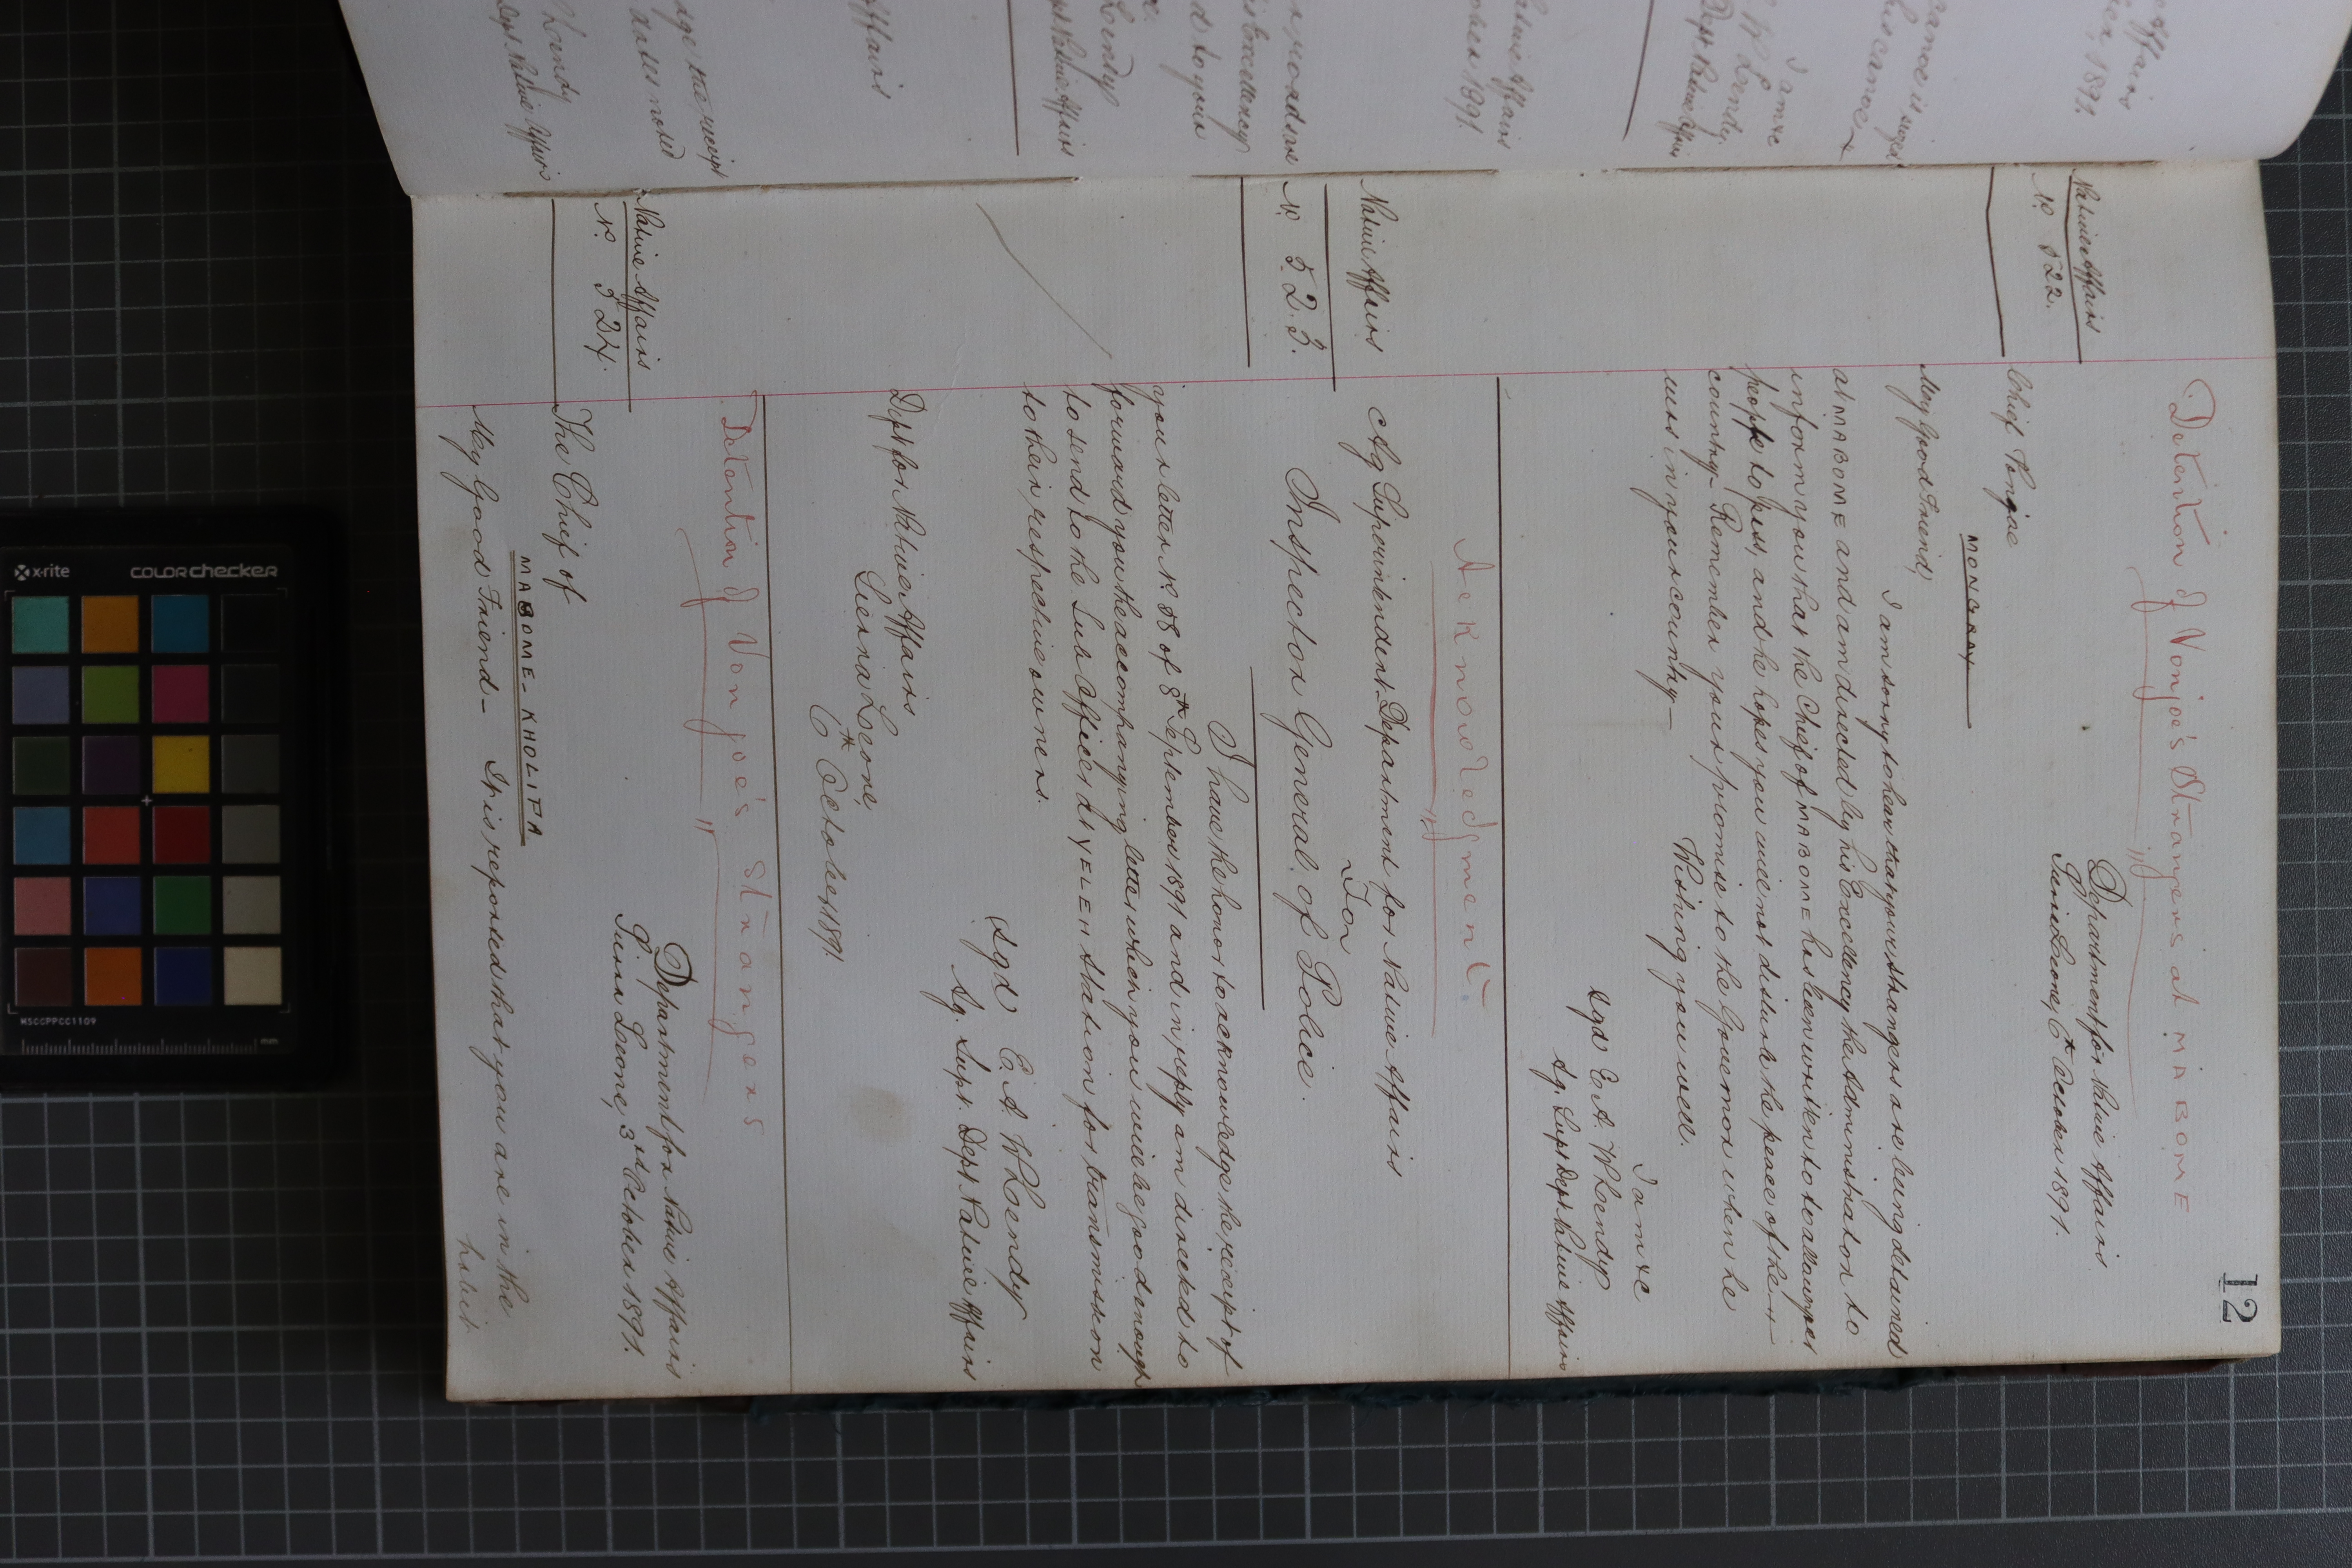 12
Detention of Vonjoe's Strangers at MABOME
Native Affairs
No. 522.
Department for Native Affairs
Sierra Leone, 6th October 1891.
Chief Vonjoe
MONGRAY
My Good Friend,
I am sorry to hear that your strangers are being detained
at MABOME and am directed by his Excellency the Administrator to
inform you that the Chief of MABOME has been written to to allow your
people to pass, and he hopes you will not disturb the peace of the
country. Remember your promise to the Governor when he
was in your country—
Wishing you well.
I am &c
sgd E. A. W Lendy
Ag. Supt Dept Native Affairs
Acknowledgment.
Native Affairs
No. 523.
Ag Superintendent Department for Native Affairs
For
Inspector General of Police.
I have the honor to acknowledge the receipt of
your letter No. 88 of 8th September 1891 and in reply am directed to
forward you the accompanying letter which you will be good enough
to send to the Sub Officer at YELEH station for transmission
to their respective owners.
sgd E. A. W Lendy
Ag. Supt. Dept. Native Affairs
Dept for Native Affairs
Sierra Leone,
6th October 1891.
Detention of Vonjoe's Strangers
Native Affairs
No. 524.
Department for Native Affairs
Sierra Leone, 3rd October 1891.
The Chief of
MABOME-KHOLIFA
My Good Friend— It is reported that you are in the
habit
x-rite
colorchecker
MSCCPPCC1109
mm